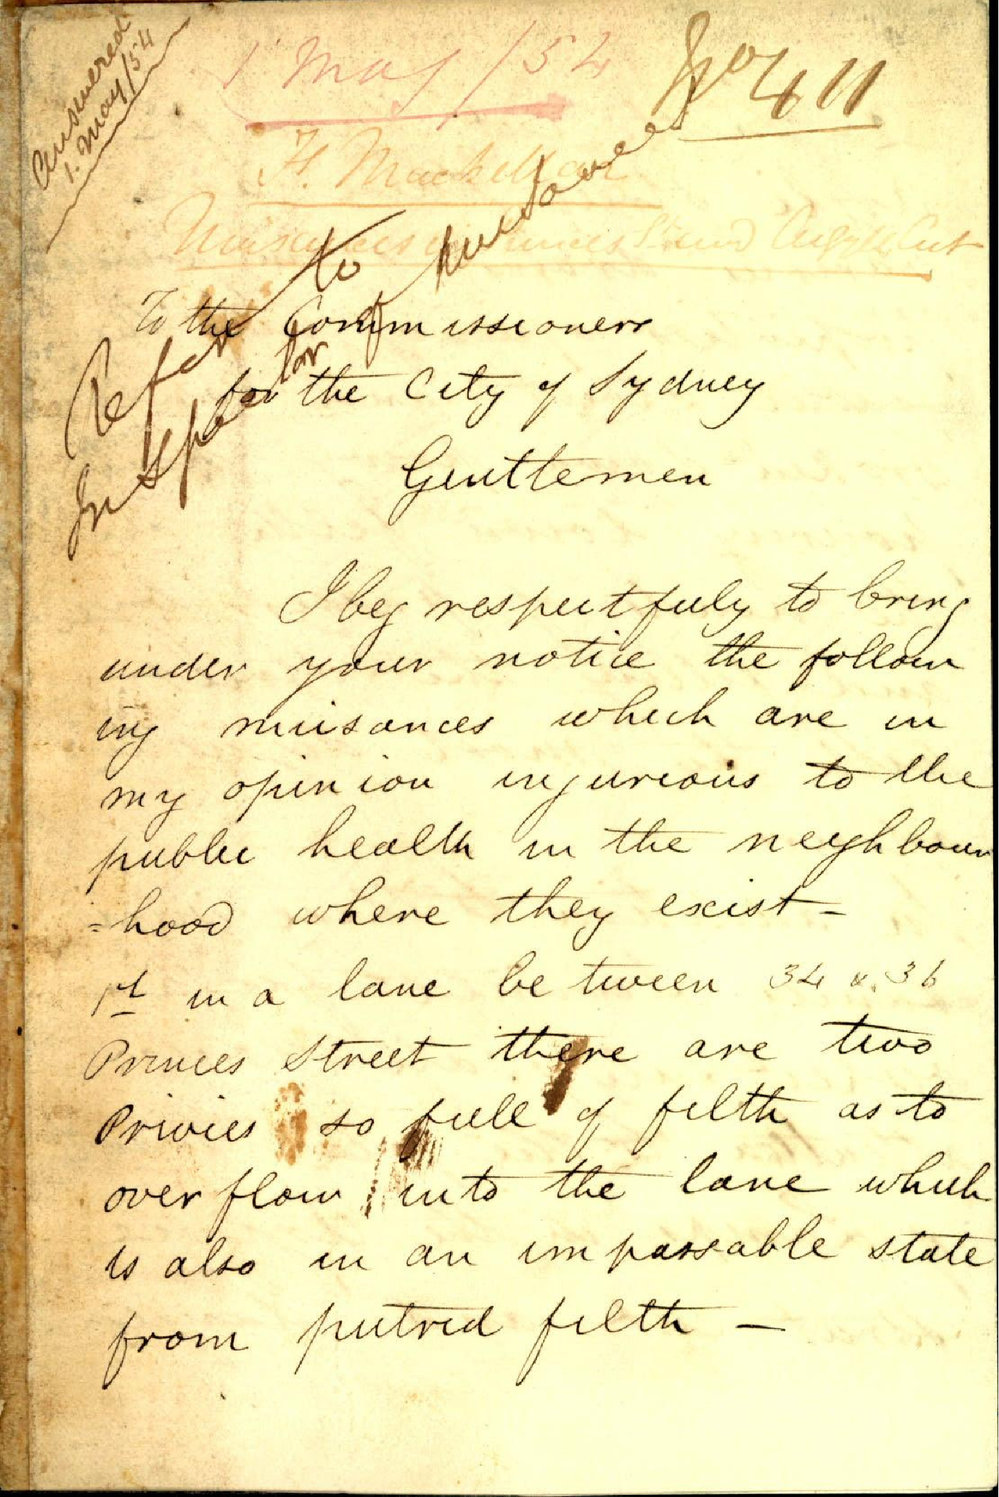 Answered
1. May/54
1 May /54
No 411
F. Mackellar
Nuisances in Princes St and Argyle Cut
Refer to
Inspector of Nuisances
To the Commissioners
for the City of Sydney
Gentlemen
I beg respectfuly to bring
under your notice the follow
ing nuisances which are in
my opinion injurious to the
public health in the neighbour
=hood where they exist -
1st in a lane between 34 & 36
Princes Street there are two
Privies so full of filth as to
overflow into the lane which
is also in an impassable state
from putrid filth -